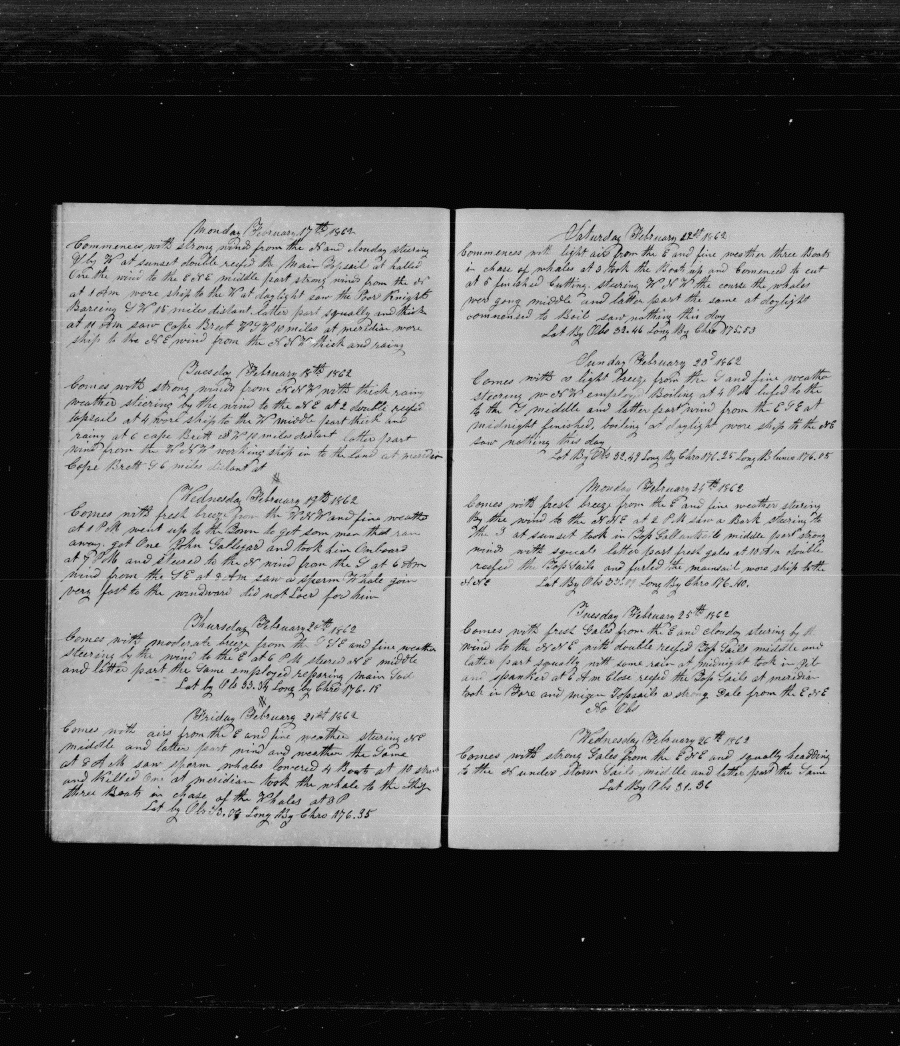 Monday February 17th 1862
Commences with strong wind from the N and cloudy steering
W by W at sunset double reefed the Main Topsail at halled
One the wind to the E N E middle part strong wind from the N
at 1 Am wore ship to the W at daylight saw the Poor Knights
Bareing S W 15 miles distant latter part squally and thick
at 11 Am saw Cape Brett W S W 10 miles at meridian wore
ship to the N E wind from the N N W thick and rainy
Tuesday February 18th 1862
Comes with strong winds from N N W with thick rainy
weather steering by the wind to the N E at 2 double reefed
topsails at 4 wore ship to the W middle part thick and
rainy at 6 cape Brett S W 10 miles distant latter part
wind from the W N W working ship in to the land at meridian
Cape Brett S 6 miles distant
Wednesday February 19th 1862
Comes with fresh breeze from the W N W and fine weather
at 1 P M went up to the Town to get som men that ran
away. got One John Gallegar and took him Onboard
at 7 P M and steered to the N wind from the S at 6 Am
wind from the S E at 8 Am saw a sperm Whale goin
very fast to the windward did not Loer for him
Thursday February 20th 1862
Comes with moderate breeze from the S S E and fine weather
steering by the wind to the E at 6 P M steered N E middle
and latter part the Same employed reparing main Sail
Lat by Obs 33.34 Long by Chro 176.18
Friday February 21st 1862
Comes with airs from the E and fine weather steering N E
middle and latter part wind and weather the Same
at 8 A M saw sperm whales lowered 4 Boats at 10 struck
and Killed One at meridian took the whale to the Ship
three Boats in chase of the Whales at 3 P
Lat by Obs 33.03 Long By Chro 176.35
Saturday February 22d 1862
Commences with light airs from the E and fine weather three Boats
in chase of whales at 3 took the Boats up and Comenced to cut
at 5 finished Cutting. steering W N W the course the whales
were gong middle and latter part the same at daylight
commensed to Boil saw nothing this day
Lat By Obs 32.46 Long By Chro 175.53
Sunday February 23d 1862
Comes with a light breeze from the S and fine weather
steering W N W employed Boiling at 4 P M lufed to the
to the S middle and latter part wind from the E S E at
midnight finished boiling at daylight wore ship to the NE
saw nothing this day
Lat By Obs 32.49 Long By Chro 176.25 Long B Lunar 176.05
Monday February 24th 1862
Comes with fresh breeze from the E and fine weather steering
By the wind to the N N E at 2 P M saw a Bark steering to
the S at sunset took in Top Gallants middle part strong
winds with squals latter part fresh gales at 10 Am double
reefed the Top Sails and furled the mainsail wore ship to the
N N E Lat By Obs Long By Chro 176.10.
Tuesday February 25th 1862
Comes with fresh Gales from the E and cloudy steering by the
wind to the N N E with double reefed Top Sails middle and
latter part squally with some rain at midnight took in Jib
and spanker at 6 Am Close reefed the Top Sails at meridian
took in Fore and mizen Topsails a strong Gale from the E N E
No Obs
Wednesday February 26th 1862
Comes with strong Gales from the E N E and squally headding
to the N under storm Sails middle and latter part the Same
Lat By Obs 31.36